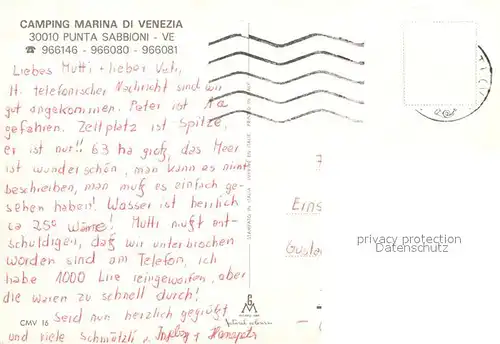 CAMPING MARINA DI VENEZIA
30010 PUNTA SABBIONI - VE
☎ 966146 - 966080 - 966081
Liebes Mutti + lieber Vati,
lt. telefonischer Nachricht sind wir
gut angekommen. Peter ist 1a
gefahren. Zeltplatz ist Spitze,
er ist nur!! 63 ha groß, das Meer
ist wunderschön, man kann es nicht
beschreiben, man muß es einfach ge-
sehen haben! Wasser ist herrlich
ca 25° Wärme! Mutti mußt ent-
schuldigen, daß wir unterbrochen
worden sind am Telefon, ich
habe 1000 Lire reingeworfen, aber
die waren zu schnell durch!
Seid nun herzlich gegrüßt
und viele Schmätzli v. Ingeborg + Hanspeter
CMV 16
Eins
Gustav
privacy protection
Datenschutz